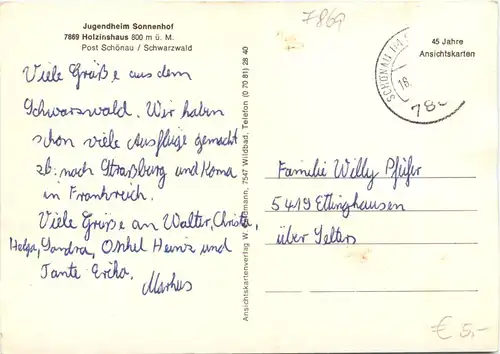 Jugendheim Sonnenhof
7869 Holzinshaus 800 m ü. M.
Post Schönau / Schwarzwald
Viele Grüße aus dem
Schwarzwald. Wir haben
schon viele Ausflüge gemacht
zb. nach Straßburg und Koma
in Frankreich.
Viele Grüße an Walter, Christa,
Helga, Sandra, Onkel Heinz und
Tante Erika.
Markus
Ansichtskartenverlag W. Wiedemann, 7547 Wildbad, Telefon (0 70 81) 28 40
7869
45 Jahre
Ansichtskarten
SCHÖNAU
18.
78
Familie Willy Pfüfer
5419 Ettinghausen
über Selters
€ 5,-